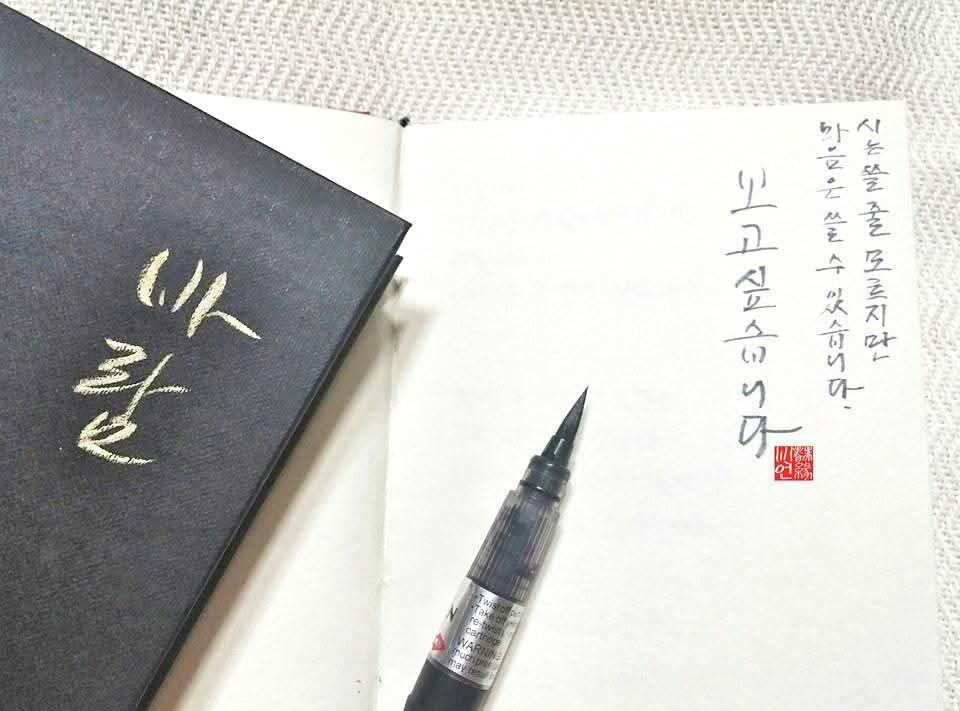 바람
시는 쓸 줄 모르지만
마음은 쓸 수 있습니다.
보고싶습니다
Twist off
Take off
re-twist
cartridge
WARNING
much pres
may resul